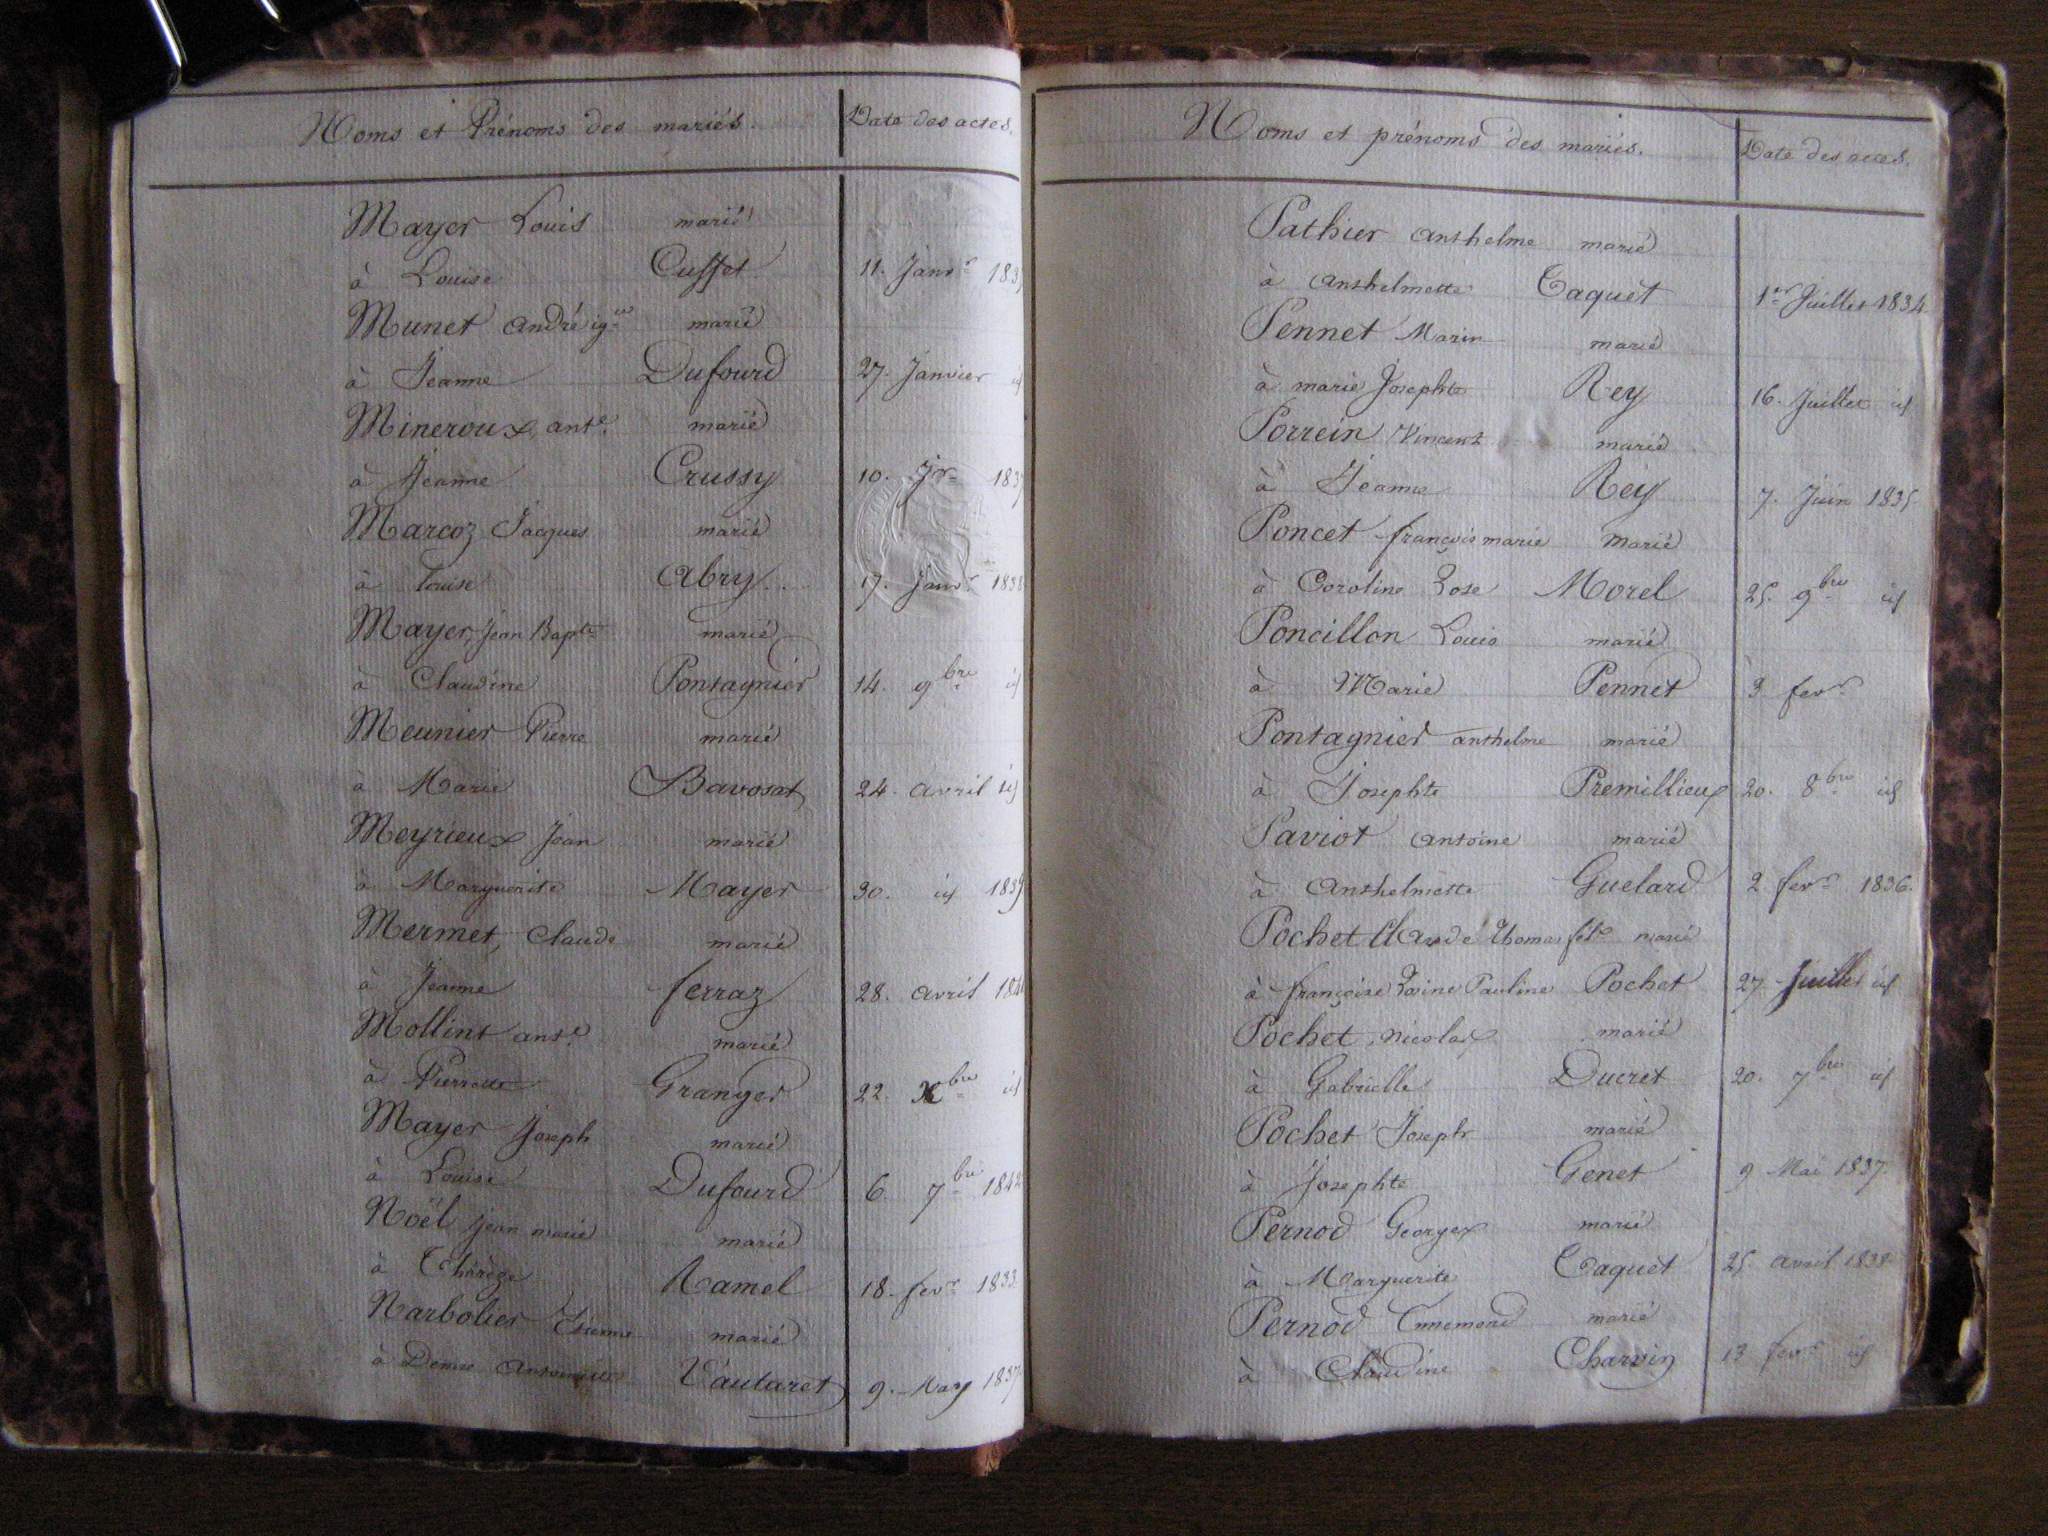 Noms et Prénoms des mariés. Date des actes.
Mayer Louis marié
à Louise Cuffet 11. Janvr 183
Munet andré igce marié
à Jeanne Dufourd 27. Janvier id
Mineroux, ante. marié
à Jeanne Crussy 10. Jr 183
Marcoz Jacques marié
à Louise Abry 17. Janvr 1838
Mayer, Jean Bapte marié
à Claudine Pontagnier 14. 9bre id
Meunier Pierre marié
à Marie Bavosat 24. avril id
Meyrieux Jean marié
à Marguerite Mayer 30. id 1839
Mermet, Claude marié
à Jeanne ferraz 28. avril 184
Mollint ante. marié
à Pierrette Granger 22. Xbre id
Mayer Joseph marié
à Louise Dufourd 6. 7bre 1842
Noël jean marie marié
à Thérèze Ramel 18. fevr 1833
Narbolier Etienne marié
à Denise Antoinette Vautaret 9. May 1837
Noms et prénoms des mariés. Date des actes.
Pathier anthelme marié
à anthelmette Taquet 1er Juillet 1834
Pennet Marin marié
à marie Josephte Rey 16. Juillet id
Porrein Vincent marié
à Jeanne Rey 7. Juin 1835
Poncet françois marie marié
à Coroline Rose Morel 25. 9bre id
Poncillon Louis marié
à Marie Pennet 3 fevr
Pontagnier anthelme marié
à Josephte Premillieux 20. 8bre id
Paviot antoine marié
à anthelmette Guelard 2 fevr 1836.
Pochet Claude Thomas felx marié
à françoise Rosine Pauline Pochet 27. Juillet id
Pochet, Nicolas marié
à Gabrielle Ducret 20. 7bre id
Pochet Joseph marié
à Josephte Genet 9 Mai 1837.
Pernod Georges marié
à Marguerite Taquet 25. avril 1838
Pernod Ennemond marié
à Claudine Charvin 13 fevr id